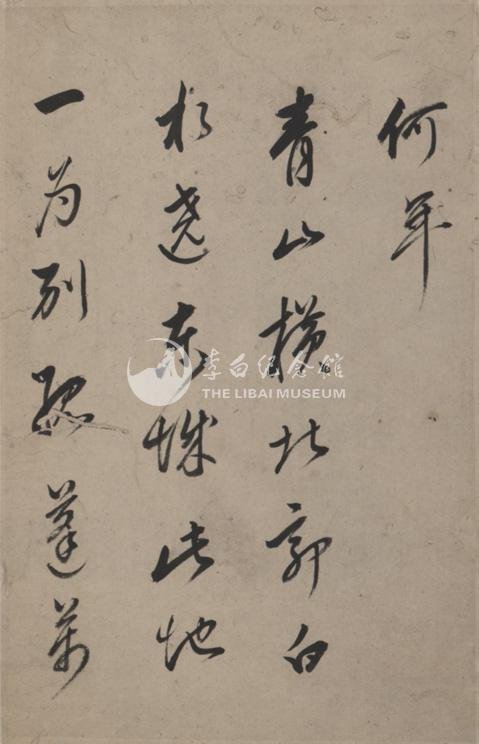 何年
青山橫北郭白
水遶東城此地
一為別孤蓬萬
李白纪念馆
THE LIBAI MUSEUM